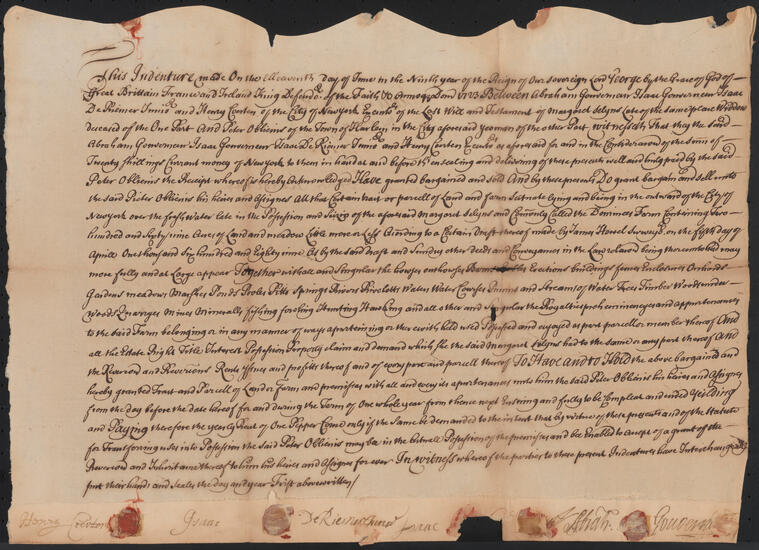 This Indenture made On the Elleaventh day of June in the Ninth year of the Reign of Our Sovereign Lord George by the Grace of God of
Great Brittain France and Ireland King Defendr. of the Faith &c Annoq Dom 1723 Between Abraham Gouverneur Isaac Gouverneur Isaac
De Riemer Junior and Henry Coerten of the City of New York Executrs. of the Last Will and Testament of Margaret Selyns Late of the same place Widdow
deceased of the One Part And Peter Oblienis of the Town of Harlem in the City aforesaid yeoman of the other Part Witnesseth That they the said
Abraham Gouverneur Isaac Gouverneur Isaac De Riemer Junior and Henry Coerten Executrs as aforesaid for and in the Consideration of the sum of
Twenty Shillings Currant money of New York to them in hand at and before th ensealing and delivering of these presents well and truly paid by the said
Peter Oblienis the Receipt whereof is hereby acknowledged Have granted bargained and sold And by these presents Do grant bargain and sell unto
the said Peter Oblienis his heires and assignes All that Certain tract or parcell of Land and Farm Scituate lying and being in the outward of the City of
New York over the fresh Water late in the Possession and Seizin of the aforesaid Margaret Selyns and Comonly Called the Dominees Farm Containing Two
hundred and Sixty nine Acres of Land and meadow Little more or Less According to a Certain Draft thereof made by James Howel Surveyr. on the fifth day of
Aprill One thousand Six hundred and Eighty nine As by the said Draft and Sundry other deeds and Conveyances in the Law relating thereunto had may
more fully and at Large appear Together with all and Singular the houses outhouses Barns Erections buildings fences Enclosures Orchards
Gardens meadows Marshes Ponds Pooles Pitts Springs Rivers Rivoletts Waters Water Courses and Streams of Water Trees Timber Woods under
Woods Quarryes Mines Mineralls fishing fowling Hunting Hawking and all other and Singular the Royalties preheminencyes and appurtenances
to the said Farm belonging or in any manner of ways appertaining or therewith held used Possessed and enjoyed as part parcell or member thereof And
all the Estate Right Title Interest Possession Property claim and demand which she the said Margaret Selyns had to the same or any part thereof And
the Reversion and Reversions Rents Issues and profitts thereof and of every part and parcell thereof To Have and to Hold the above bargained and
hereby granted Tract and Parcell of Land or Farm and premisses with all and every its apurtenances unto him the said Peter Oblienis his heires and Assignes
from the day before the date hereof for and during the Term of One whole year from thence next Ensuing and fully to be Compleat and ended Yeilding
and Paying therefore the yearly Rent of One Pepper Corne only if the Same be demanded to the intent that by virtue of these presents and of the Statute
for Transferring uses into Possession the said Peter Oblienis may be in the actuall Possession of the premisses and be Enabled to accept of a grant of the
Reversion and Inheritance thereof to him his heires and Assignes for ever In Witness whereof the parties to these present Indentures have Interchangeably
put their hands and Seales the day and year First above written/
Henry Coerten Isaac De Riemer Junr. Isaac Abrah. Gouverneur